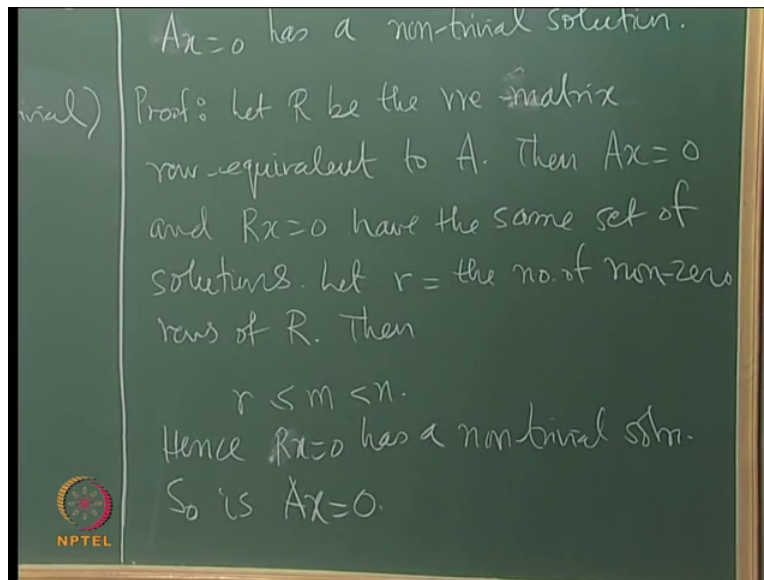 Ax=0 has a non-trivial solution.
ivial)
Proof: Let R be the rre matrix
row-equivalent to A. Then Ax=0
and Rx=0 have the same set of
solutions. Let r = the no. of non-zero
rows of R. Then
r ≤ m < n.
Hence Rx=0 has a non trivial soln.
So is Ax=0.
NPTEL